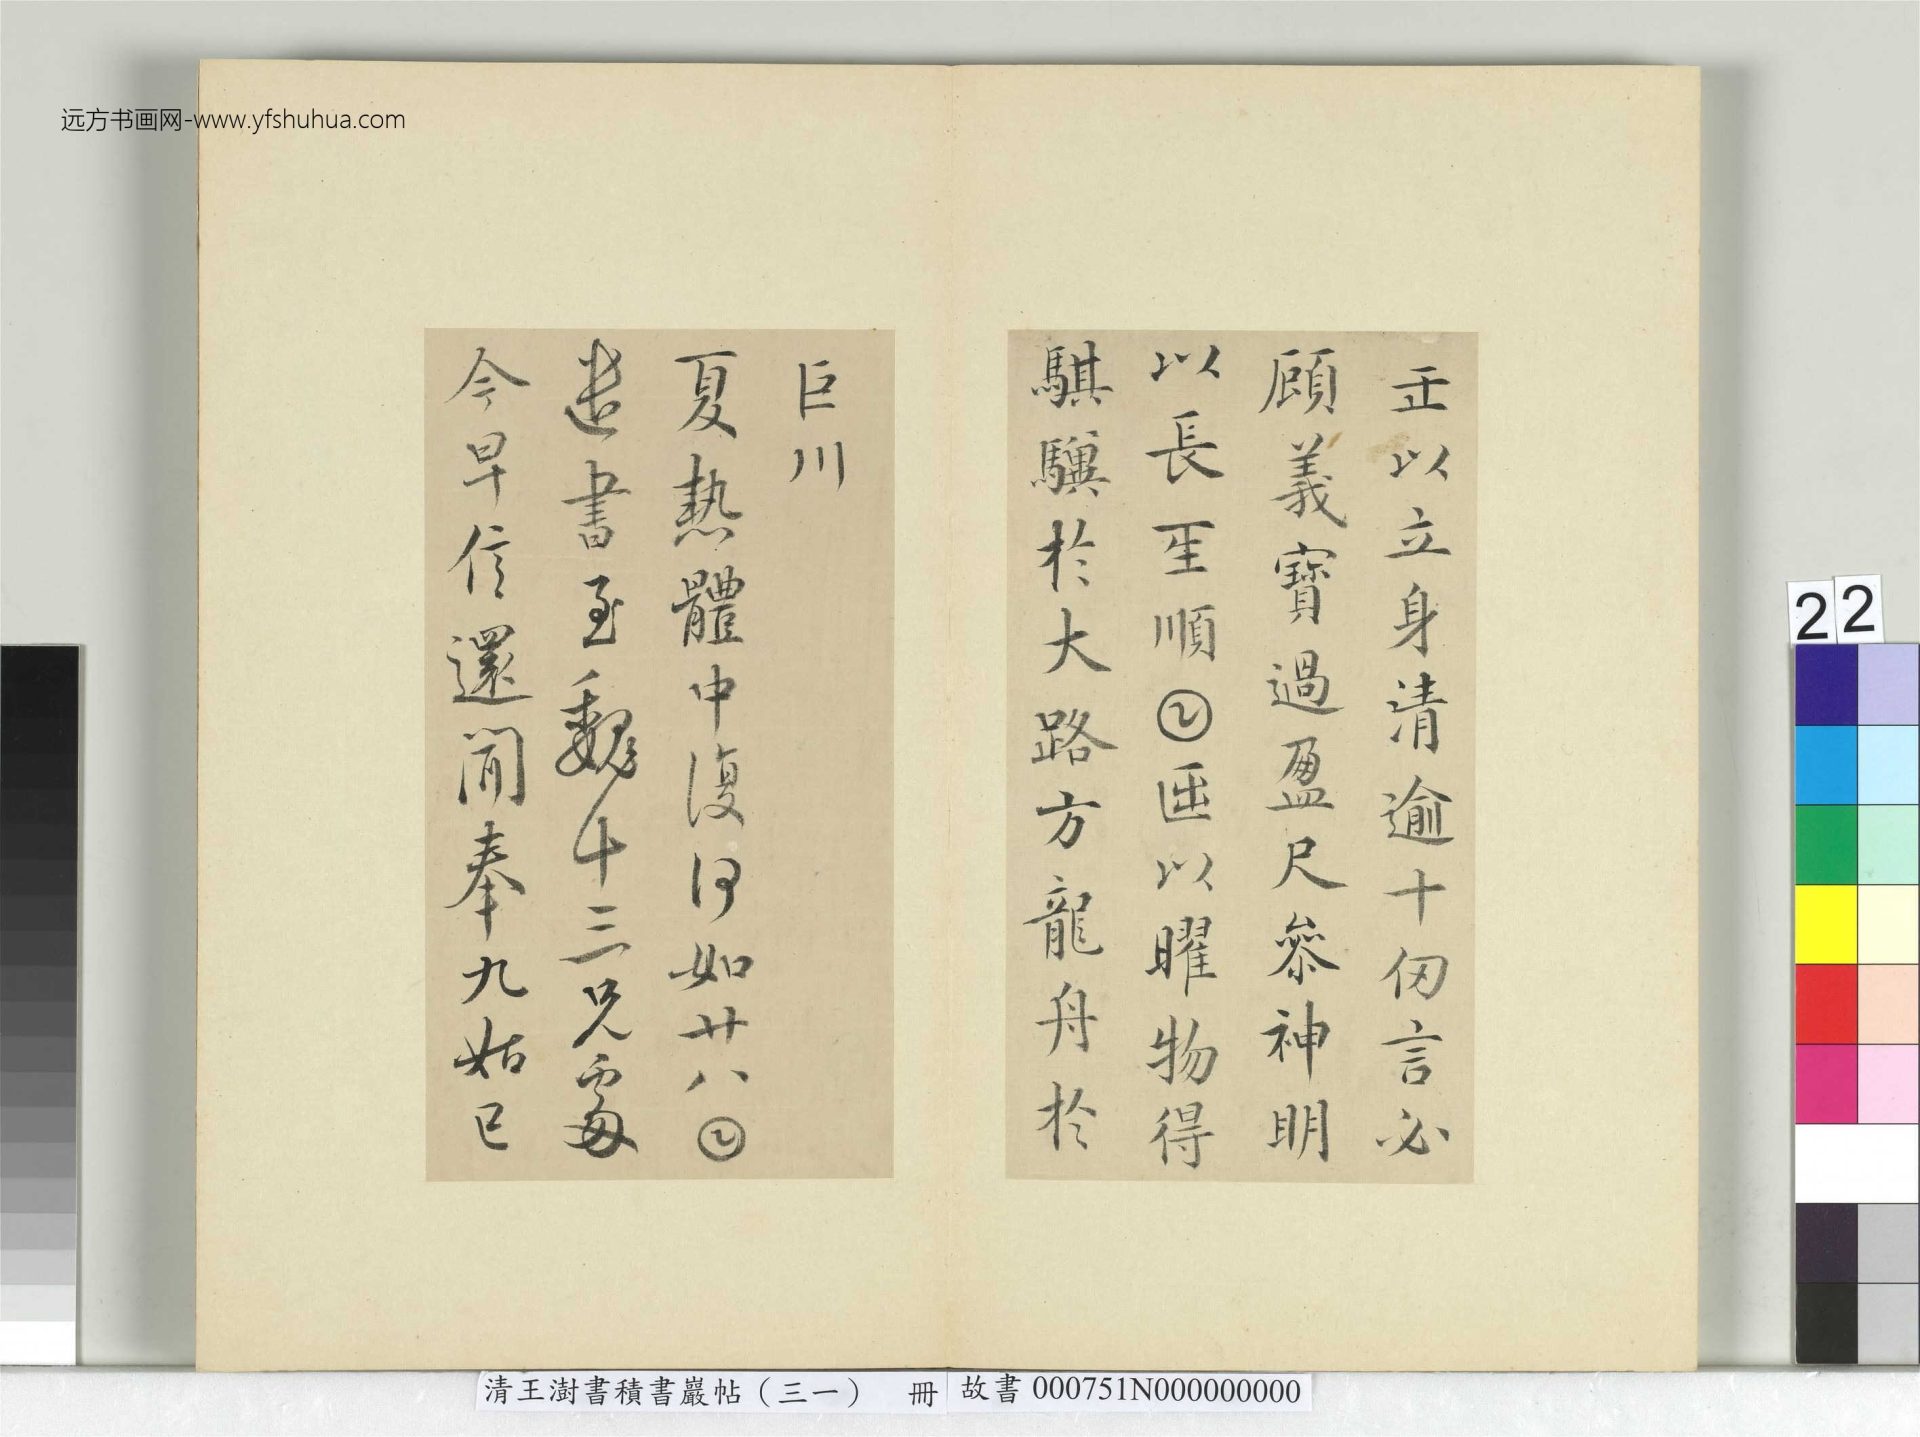 远方书画网-www.yfshuhua.com
𠙺以立身清逾十仞言必
顧義寶過盈尺叅神明
以長𤯔順𡆠𠥱以曜物得
騏驥於大路方龍舟於
巨川
夏熱體中復何如廿八𡆠
遣書至魏十三兄處
今早信還聞奉九姑已
22
清王澍書積書巖帖（三一） 冊 故書 000751N000000000